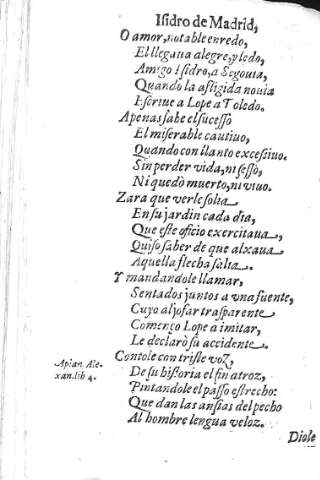 Isidro de Madrid,
O amor, notable enredo,
El llegaua alegre, y ledo,
Amigo Isidro, a Segouia,
Quando la afligida nouia
Escriue a Lope a Toledo.
Apenas sabe el sucesso
El miserable cautiuo,
Quando con llanto excessiuo.
Sin perder vida, ni sesso,
Ni quedò muerto, ni viuo.
Zara que verle solia
En su jardin cada dia,
Que este oficio exercitaua,
Quiso saber de que alxaua
Aquella flecha salia.
Y mandandole llamar,
Sentados juntos a vna fuente,
Cuyo aljofar trasparente
Començo Lope a imitar,
Le declarò su accidente.
Contole con triste voz,
De su historia el fin atroz,
Pintandole el passo estrecho:
Que dan las ansias del pecho
Al hombre lengua veloz.
Apian. Ale-
xan. lib 4.
Diole